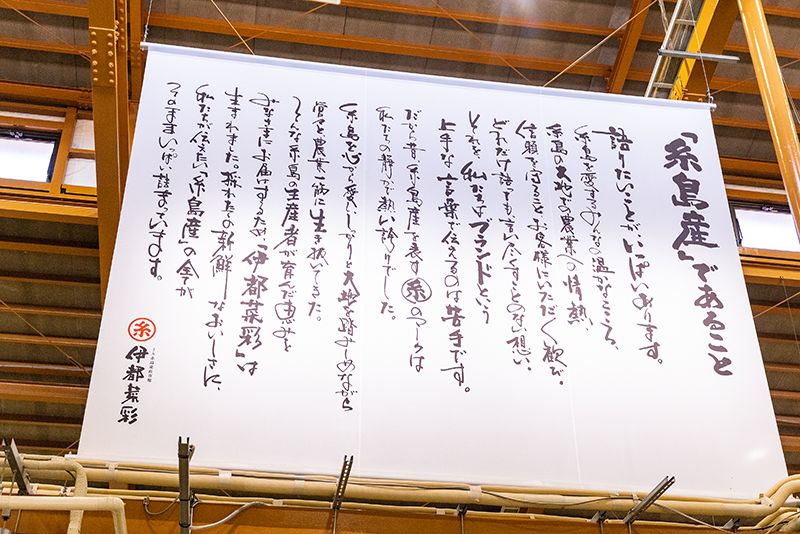 「糸島産」であること
語りたいことがいっぱいあります。
糸島を愛するみんなの温かなこころ、
糸島の大地で農業への情熱、
信頼を守ること、お客様にいただく歓び。
どれだけ語っても、言い尽くすことのない想い、
それを、私たちはブランドという
上手な言葉で伝えるのは苦手です。
だから昔、「糸島産」を表す㊗のマークは
私たちの静かで熱い誇りでした。
糸島を心から愛し、しっかりと大地を踏みしめながら
営々と農業一筋に生き抜いてきた。
そんな糸島の生産者が育んだ恵みを
みなさまにお届けするため「伊都菜彩」は
生まれました。採れたての新鮮なおいしさに、
私たちが伝えたい「糸島産」の全てが
そのままいっぱい詰まっています。
糸
JA糸島産直市場
伊都菜彩